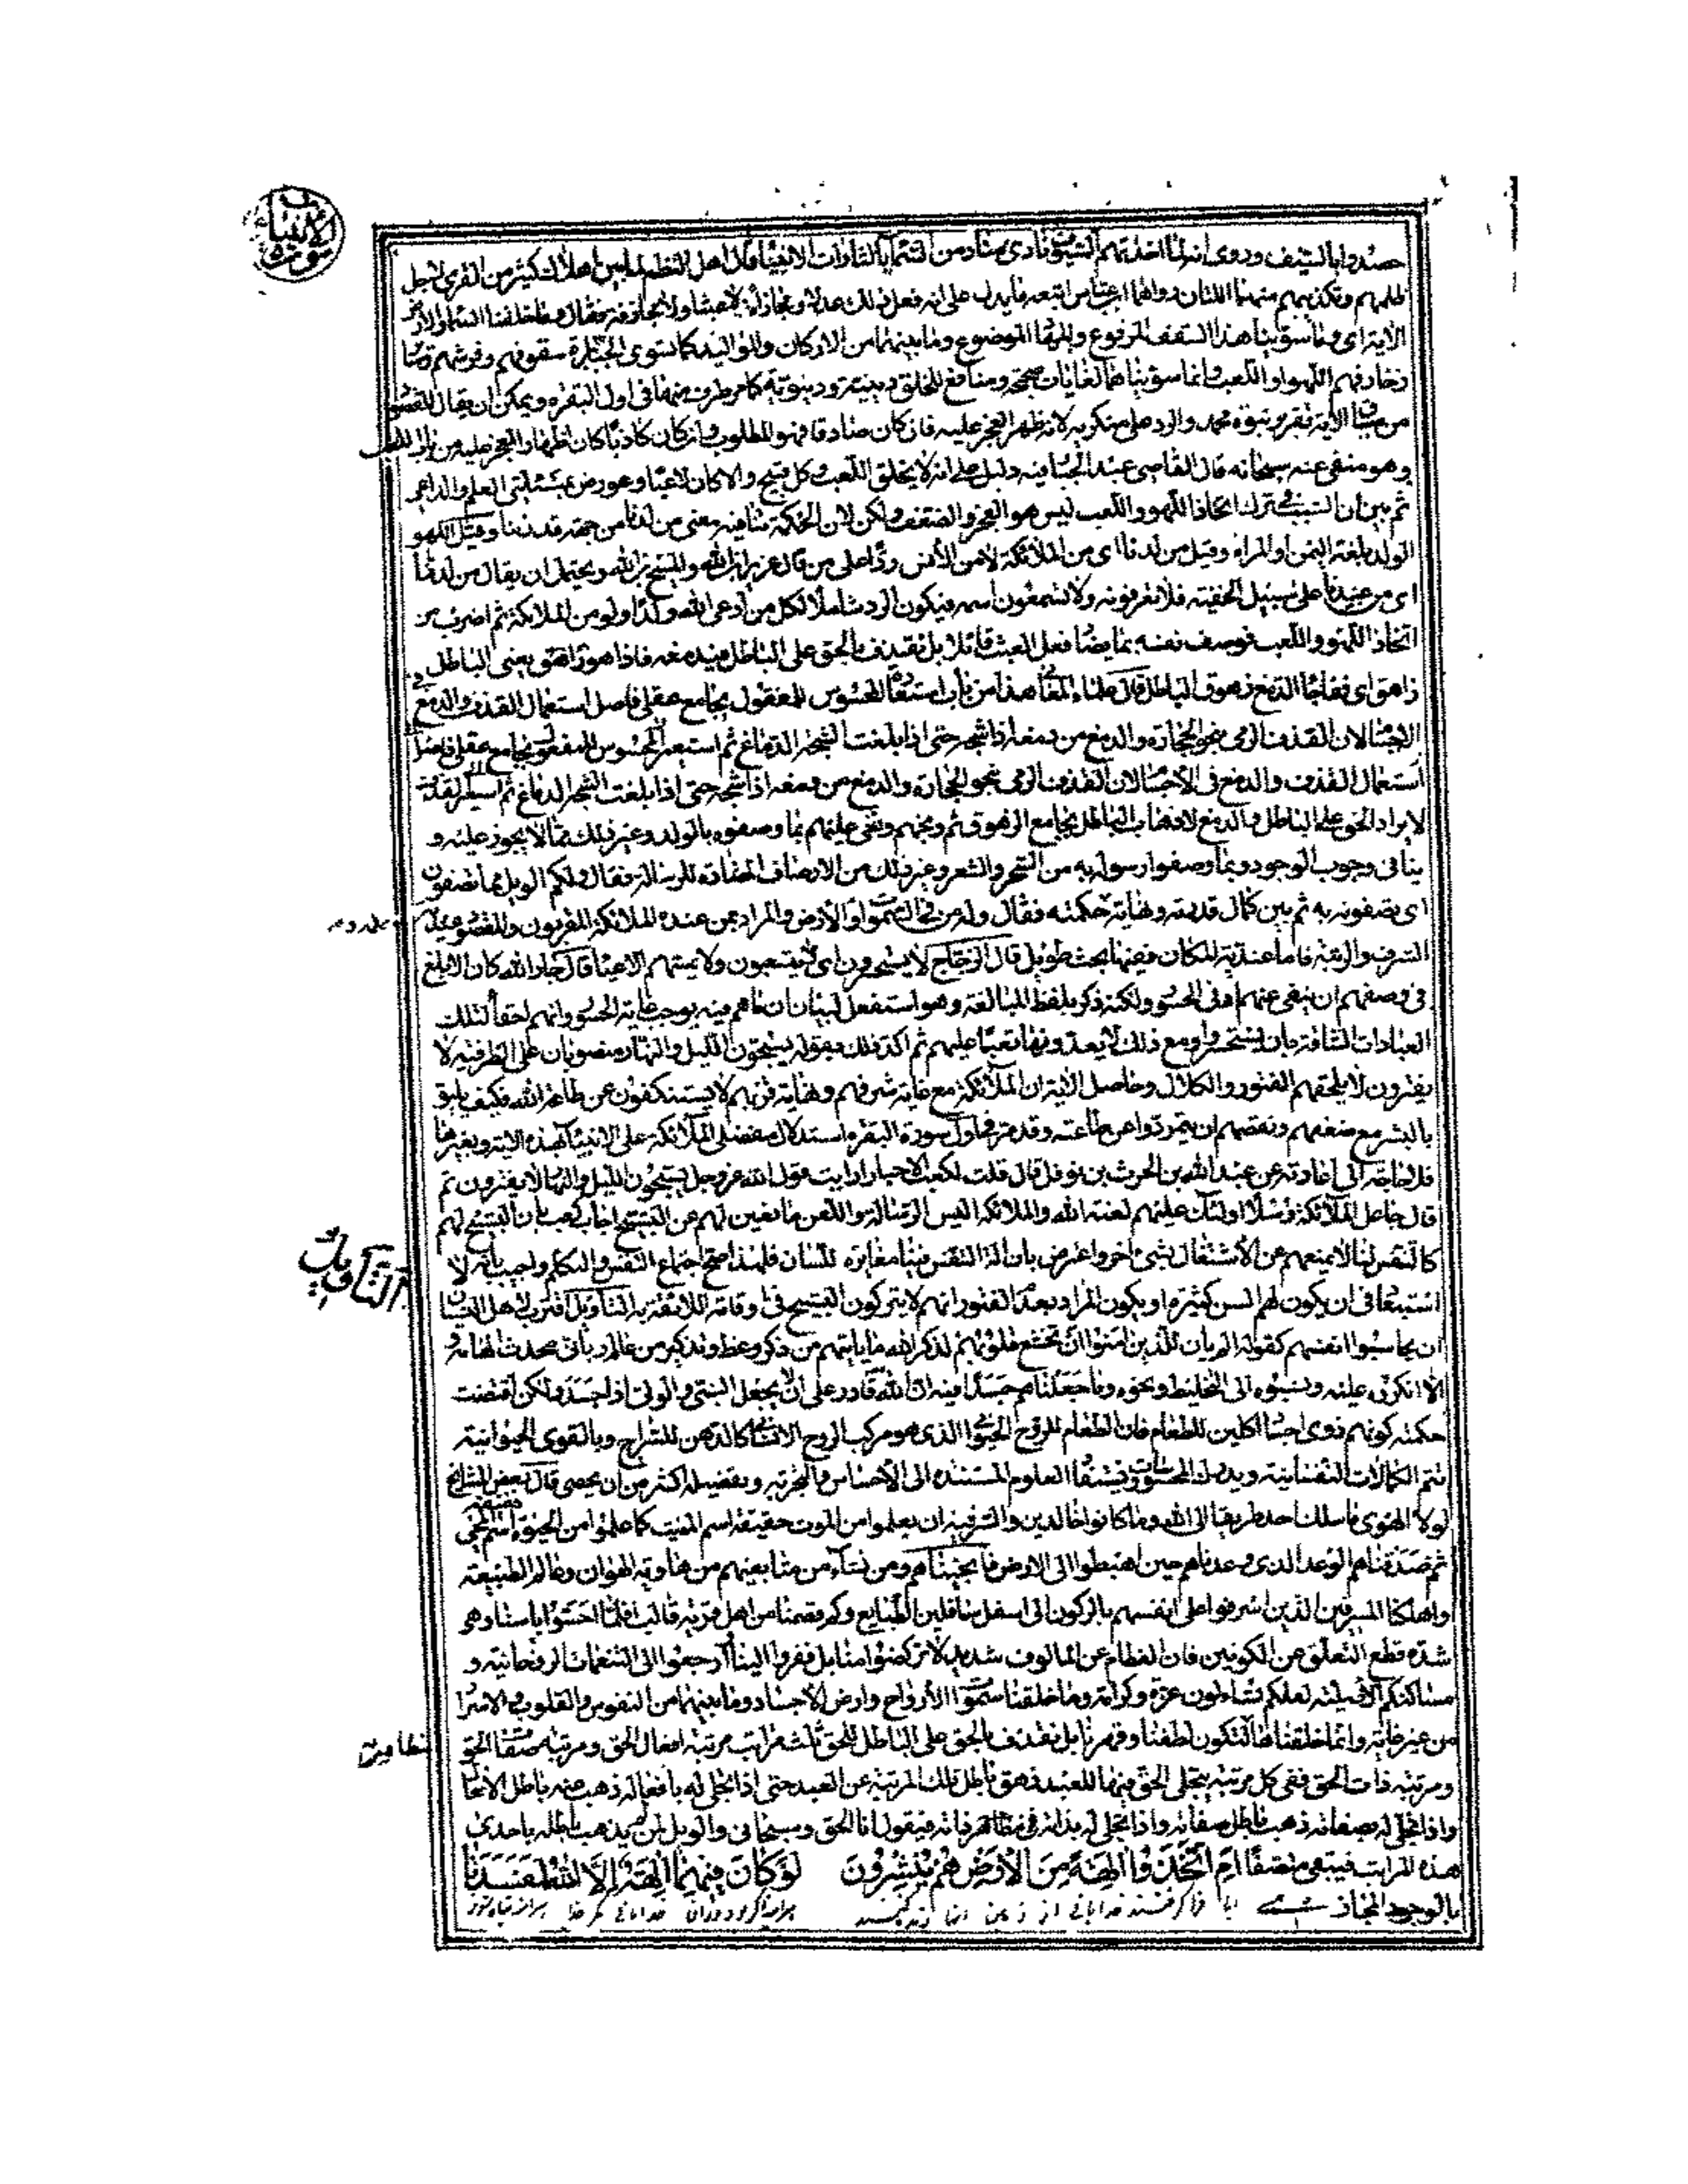 سورة الأنبياء
حصدوا بالسيف وروى انه لما اخذتهم السيوف نادى مناد من السماء يا لثارات الانبياء قال اهل النظم لما بين اهلاك كثير من القرى لاجل
ظلمهم وتكذيبهم فعل ذلك عدلا ومجازاة لا عبثا ولا مجازفة فقال وما خلقنا السماء والارض
الآية اى وما سوينا هذا السقف المرفوع والمهاد الموضوع وما بينهما من الاركان والمواليد كما تسوى الجبابرة سقوفهم وفرشهم وسائر
زخارفهم اللهو واللعب وانما سويناهما لغايات صحيحة ومنافع للخلق دينية ودنيوية كما مر طرف منها فى اول البقرة ويمكن ان يقال المقصود
من سياق الآية تقرير نبوة محمد والرد على منكريه لانه ظهر المعجز عليه فان كان صادقا فهو المطلوب وان كان كاذبا كان اظهار المعجز عليه من باب اللعب
وهو منفى عنه سبحانه قال القاضى عبد الجبار فيه دليل على انه لا يخلق اللعب وكل قبيح والا كان لاعبا وعورض بمسئلتى العلم والداعى
ثم بين ان السبب فى ترك اتخاذ اللهو واللعب ليس هو العجز والضعف ولكن لان الحكمة تنافيه معنى من لدنا من جهة قدرتنا وقيل اللهو
الولد بلغة اليمن او المرأة وقيل من لدنا اى من الملائكة لا من الأنس ردا على من قال عزير ابن الله والمسيح ابن الله ويحتمل ان يقال من لدنا
اى من عندنا على سبيل الخفية فلا تعرفونه ولا تسمعون اسمه فيكون الرد شاملا لكل من ادعى الله ولدا ولو من الملائكة ثم اضرب عن
اتخاذ اللهو واللعب فوصف نفسه بما يضاد فعل العبث قائلا بل نقذف بالحق على الباطل فيدمغه فاذا هو زاهق يعنى الباطل
زاهق اى يفاجأ الدمغ زهوق الباطل قال علماء المعانى هذا من باب استعارة المحسوس للمعقول بجامع عقلى فاصل استعمال القذف والدمغ
الاجسام لان القذف الرمى بنحو الحجارة والدمغ من دمغه اذا شجه حتى اذا بلغت الشجة الدماغ ثم استعير المحسوس للمعقول بجامع عقلى فاصل
استعمال القذف والدمغ فى الأجسام لان القذف الرمى بنحو الحجارة والدمغ من دمغه اذا شجه حتى اذا بلغت الشجة الدماغ ثم استعير القذف
لايراد الحق على الباطل والدمغ لاذهاب الباطل بجامع الزهوق ثم وبخهم ونعى عليهم بما وصفوه بالولد وغير ذلك مما لا يجوز عليه و
ينافى وجوب الوجود وبما وصفوا رسوله به من السحر والشعر وغير ذلك من الاوصاف المضادة للرسالة فقال ولكم الويل مما تصفون
اى تصفونه به ثم بين كمال قدرته ونهاية حكمته فقال وله من فى السموات والأرض والمراد بمن عنده الملائكة المقربون والمقصود عندية
الشرف والرتبة فاما عندية المكان ففيها بحث طويل قال الزجاج لا يستحسرون اى لا يتعبون ولا يمسهم الاعياء قال جار الله كان الابلغ
فى وصفهم ان ينفى عنهم ادنى الحسور ولكنه ذكر بلفظ المبالغة وهو استفعل لبيان ان ما هم فيه يوجب غاية الحسور وانهم احقاء لتلك
العبادات الشاقة بان يستحسروا ومع ذلك لا يعدونها تعبا عليهم ثم اكد ذلك بقوله يسبحون الليل والنهار منصوبان على الظرفية لا
يفترون لا يلحقهم الفتور والكلال وحاصل الآية ان الملائكة مع غاية شرفهم ونهاية قربهم لا يستنكفون عن طاعة الله فكيف يليق
بالبشر مع ضعفهم ونقصهم ان يتمردوا عن طاعته وقد مر فى اول سورة البقرة استدلال مفضلى الملائكة على الانبياء بهذه الآية وبغيرها
فلا حاجة الى اعادته عن عبد الله بن الحرث بن نوفل قال قلت لكعب الاحبار ارايت قول الله عز وجل يسبحون الليل والنهار لا يفترون ثم
قال جاعل الملائكة رسلا اولئك عليهم لعنة الله والملائكة اليس الرسالة واللعن مانعين لهم عن التسبيح اجاب كعب بان التسبيح لهم
كالتنفس لنا لا يمنعهم عن الاشتغال بشئ اخر واعترض بان آلة التنفس فينا مغايرة للسان فلهذا صح اجتماع التنفس والتكلم واجيب بانه لا
استبعاد فى ان يكون لهم السن كثيرة او يكون المراد بعدم الفتور انهم لا يتركون التسبيح فى اوقاته اللائقة به التأويل اقترب لاهل النسيان
ان يحاسبوا انفسهم كقوله الم يان للذين آمنوا ان تخشع قلوبهم لذكر الله ما ياتيهم من ذكر وعظ وتذكير من عالم ربانى محدث
الا انكروا عليه ونسبوه الى التخليط ونحوه وما جعلناهم جسدا فيه ان الله قادر على ان لا يجعل النبى والولى ذا جسد ولكن اقتضت
حكمته كونهم ذوى اجساد اكلين للطعام فان الطعام للروح الحيوانى الذى هو مركب الروح الانسانى كالدهن للسراج وبالقوى الحيوانية
تتم الكمالات النفسانية ويدرك المحسوسات العلوم المستندة الى الاحساس والتجربة وتفصيله اكثر من ان يحصى قال بعض المشايخ
لولا الهوى ما سلك احد طريقا الى الله وما كانوا خالدين والشرفية ان يعلموا من الموت حقيقة اسم المميت كما علموا من الحيوة حقيقة اسم المحيى
ثم صدقناهم الوعد الذى وعدناهم حين اهبطوا الى الارض فانجيناهم ومن نشاء من متابعيهم من هاوية الهوان وعالم الطبيعة
واهلكنا المسرفين الذين اسرفوا على انفسهم بالركون الى اسفل سافلين الطبايع وكم قصمنا من اهل قرية قالب فلما احسوا باسنا وهو
شدة قطع التعلق عن الكونين فان الفطام عن المالوف شديد لا تركضوا منا بل ففروا الينا وارجعوا الى التنعمات الروحانية و
مساكنكم الاصلية لعلكم تسئلون عزة وكرامة وما خلقنا سموات الأرواح وارض الاجساد وما بينهما من النفوس والقلوب والاسرار
من غير غاية وانما خلقناها لتكون لطفنا وقهرنا بل نقذف بالحق على الباطل للحق ثلث مراتب مرتبة افعال الحق ومرتبة صفات الحق
ومرتبة ذات الحق ففى كل مرتبة يتجلى الحق فيها للعبد زهق باطل تلك المرتبة عن العبد حتى اذا تجلى له بافعاله ذهب عنه باطل الافعال
واذا تجلى له بصفاته ذهب باطل صفاته واذا تجلى له بذاته فى مظاهر ذاته فيقول انا الحق وسبحانى والويل لمن لم يذهب باطله باحدى
هذه المراتب فيبقى متصفا ام اتخذوا آلهة من الأرض هم ينشرون لو كان فيهما آلهة الا الله لفسدتا
بالوجود المجازى ايا فرا گرفتند خدايانى از زمين
التأويل